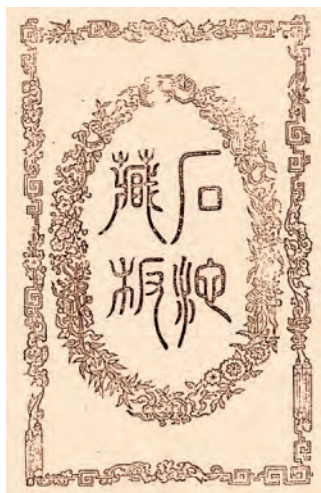 石池
藏板